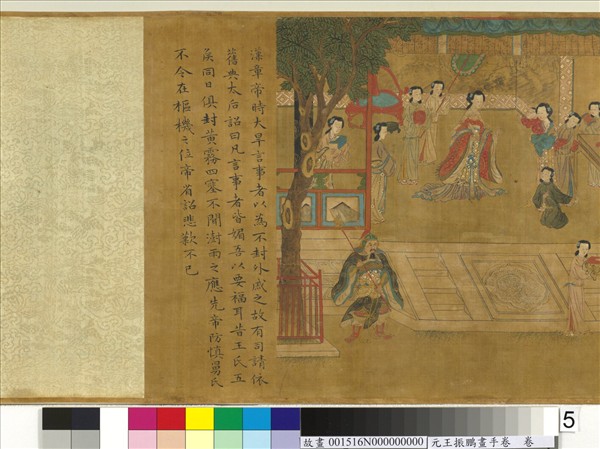 漢章帝時大旱言事者以為不封外戚之故有司請依
舊典太后詔曰凡言事者皆媚吾以要福耳昔王氏五
侯同日俱封黃霧四塞不聞澍雨之應先帝防慎舅氏
不令在樞機之位帝省詔悲歎不已
5
故畫 001516N000000000
元王振鵬畫手卷 卷